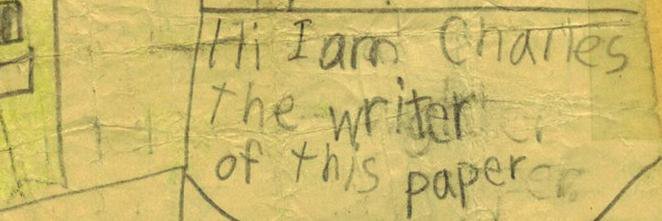 Hi I am Charles
the writer
of this paper